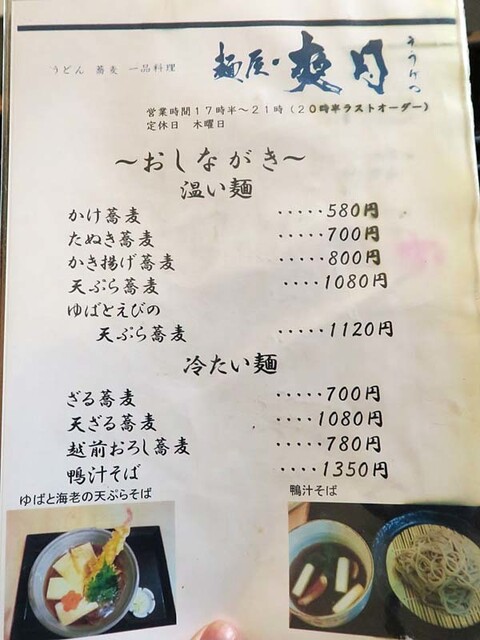 うどん 蕎麦 一品料理
麺屋・爽月
そうげつ
営業時間17時半～21時(20時半ラストオーダー)
定休日 木曜日
～おしながき～
温い麺
かけ蕎麦 ・・・・・580円
たぬき蕎麦 ・・・・・700円
かき揚げ蕎麦 ・・・・800円
天ぷら蕎麦 ・・・・1080円
ゆばとえびの
天ぷら蕎麦 ・・・・・1120円
冷たい麺
ざる蕎麦 ・・・・・700円
天ざる蕎麦 ・・・・1080円
越前おろし蕎麦 ・・・・・780円
鴨汁そば ・・・・1350円
ゆばと海老の天ぷらそば
鴨汁そば